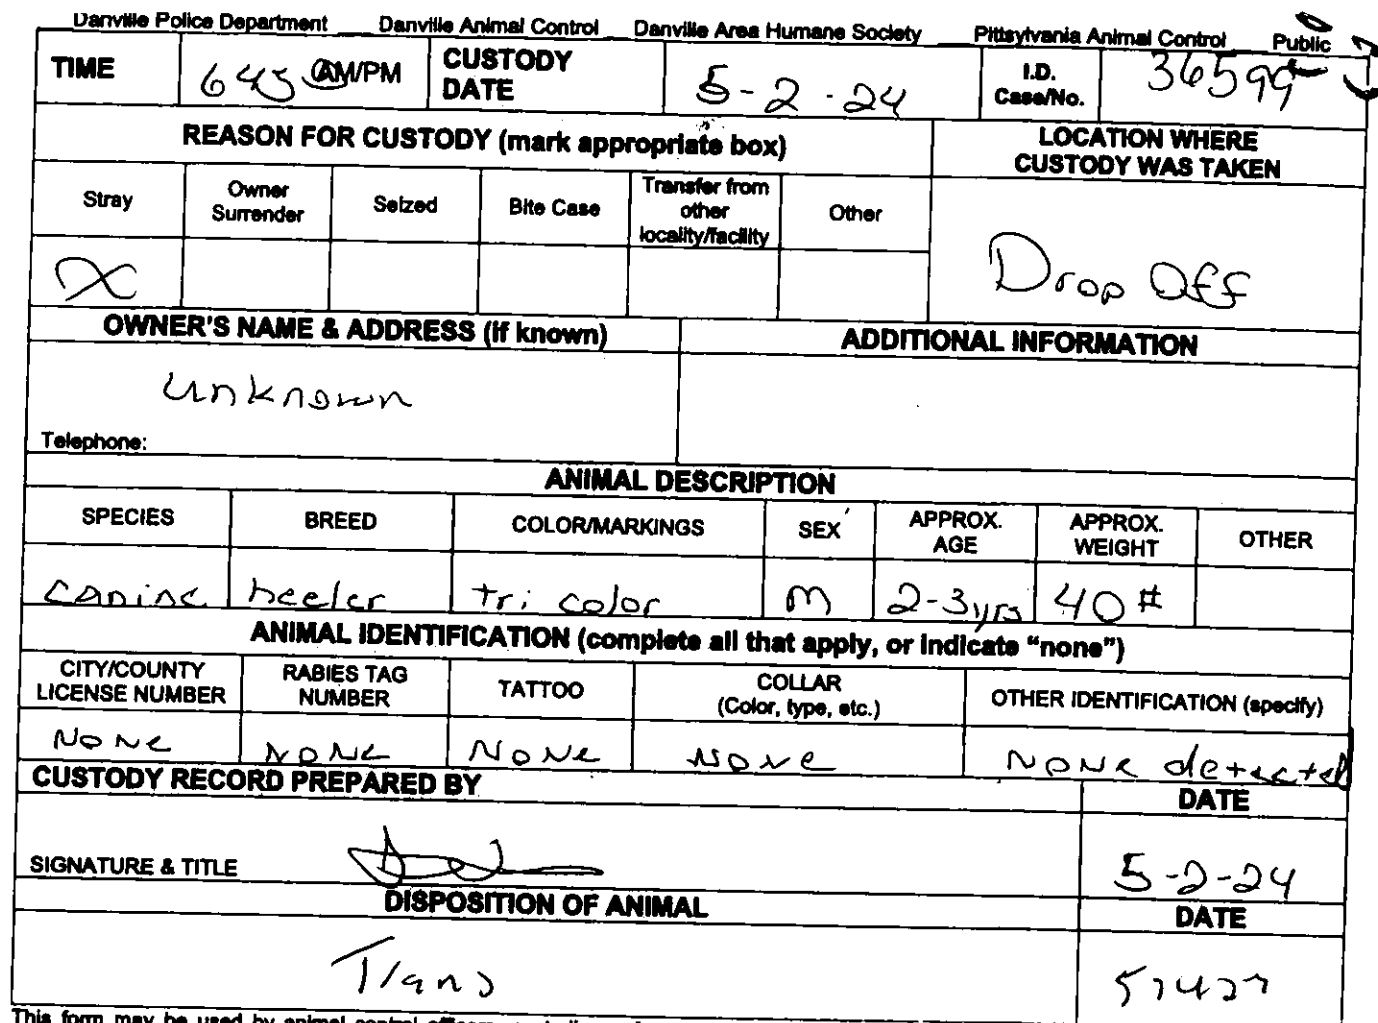 Danville Police Department Danville Animal Control Danville Area Humane Society Pittsylvania Animal Control Public
TIME 645 AM/PM CUSTODY DATE 5-2-24 I.D. Case/No. 36599
REASON FOR CUSTODY (mark appropriate box) LOCATION WHERE CUSTODY WAS TAKEN
Stray Owner Surrender Seized Bite Case Transfer from other locality/facility Other
X Drop Off
OWNER'S NAME & ADDRESS (if known) ADDITIONAL INFORMATION
unknown
Telephone:
ANIMAL DESCRIPTION
SPECIES BREED COLOR/MARKINGS SEX APPROX. AGE APPROX. WEIGHT OTHER
canine heeler tri color M 2-3yrs 40#
ANIMAL IDENTIFICATION (complete all that apply, or indicate "none")
CITY/COUNTY LICENSE NUMBER RABIES TAG NUMBER TATTOO COLLAR (Color, type, etc.) OTHER IDENTIFICATION (specify)
None None None None None detected
CUSTODY RECORD PREPARED BY DATE
SIGNATURE & TITLE 5-2-24
DISPOSITION OF ANIMAL DATE
Trans
This form may be used by animal control officers